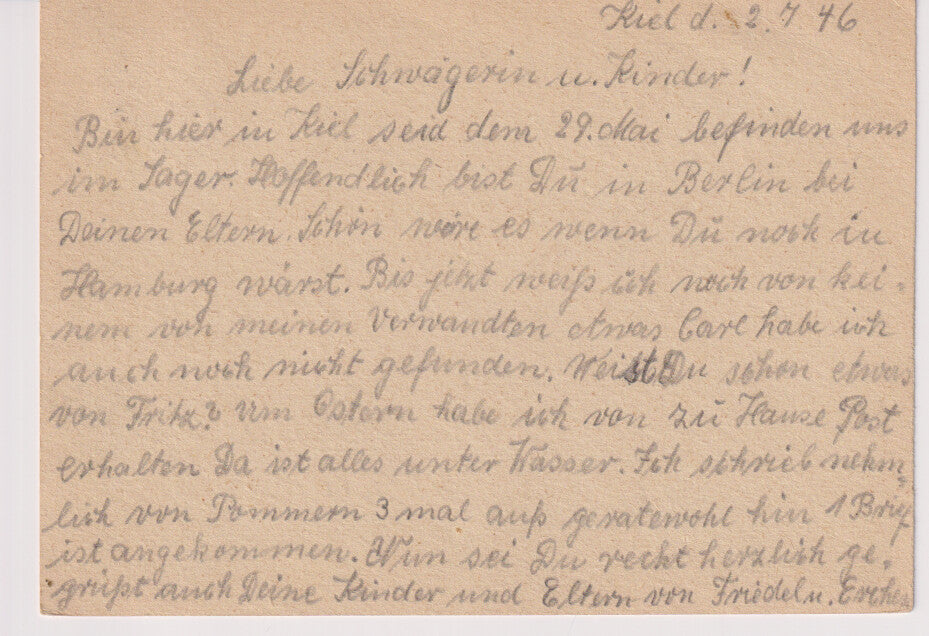 Kiel d. 2.7.46
Liebe Schwägerin u. Kinder!
Bin hier in Kiel seid dem 29. Mai befinden uns
im Lager. Hoffendlich bist Du in Berlin bei
Deinen Eltern. Schön wäre es wenn Du noch in
Hamburg wärst. Bis jetzt weiß ich noch von kei-
nem von meinen Verwandten etwas Carl habe ich
auch noch nicht gefunden. Weist Du schon etwas
von Fritz? Um Ostern habe ich von zu Hause Post
erhalten Da ist alles unter Wasser. Ich schrieb nehm-
lich von Pommern 3 mal aufs geratewohl hin 1 Brief
ist angekommen. Nun sei Du recht herzlich ge-
grüßt auch Deine Kinder und Eltern von Friedel u.